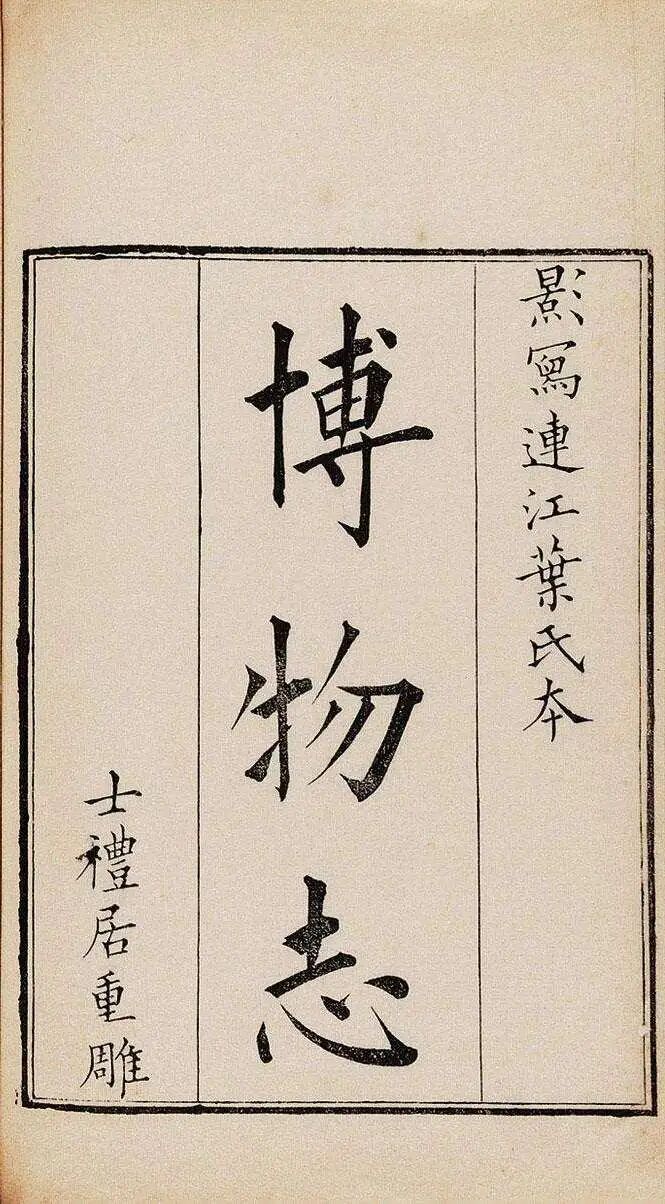 影寫連江葉氏本
博物志
士禮居重雕